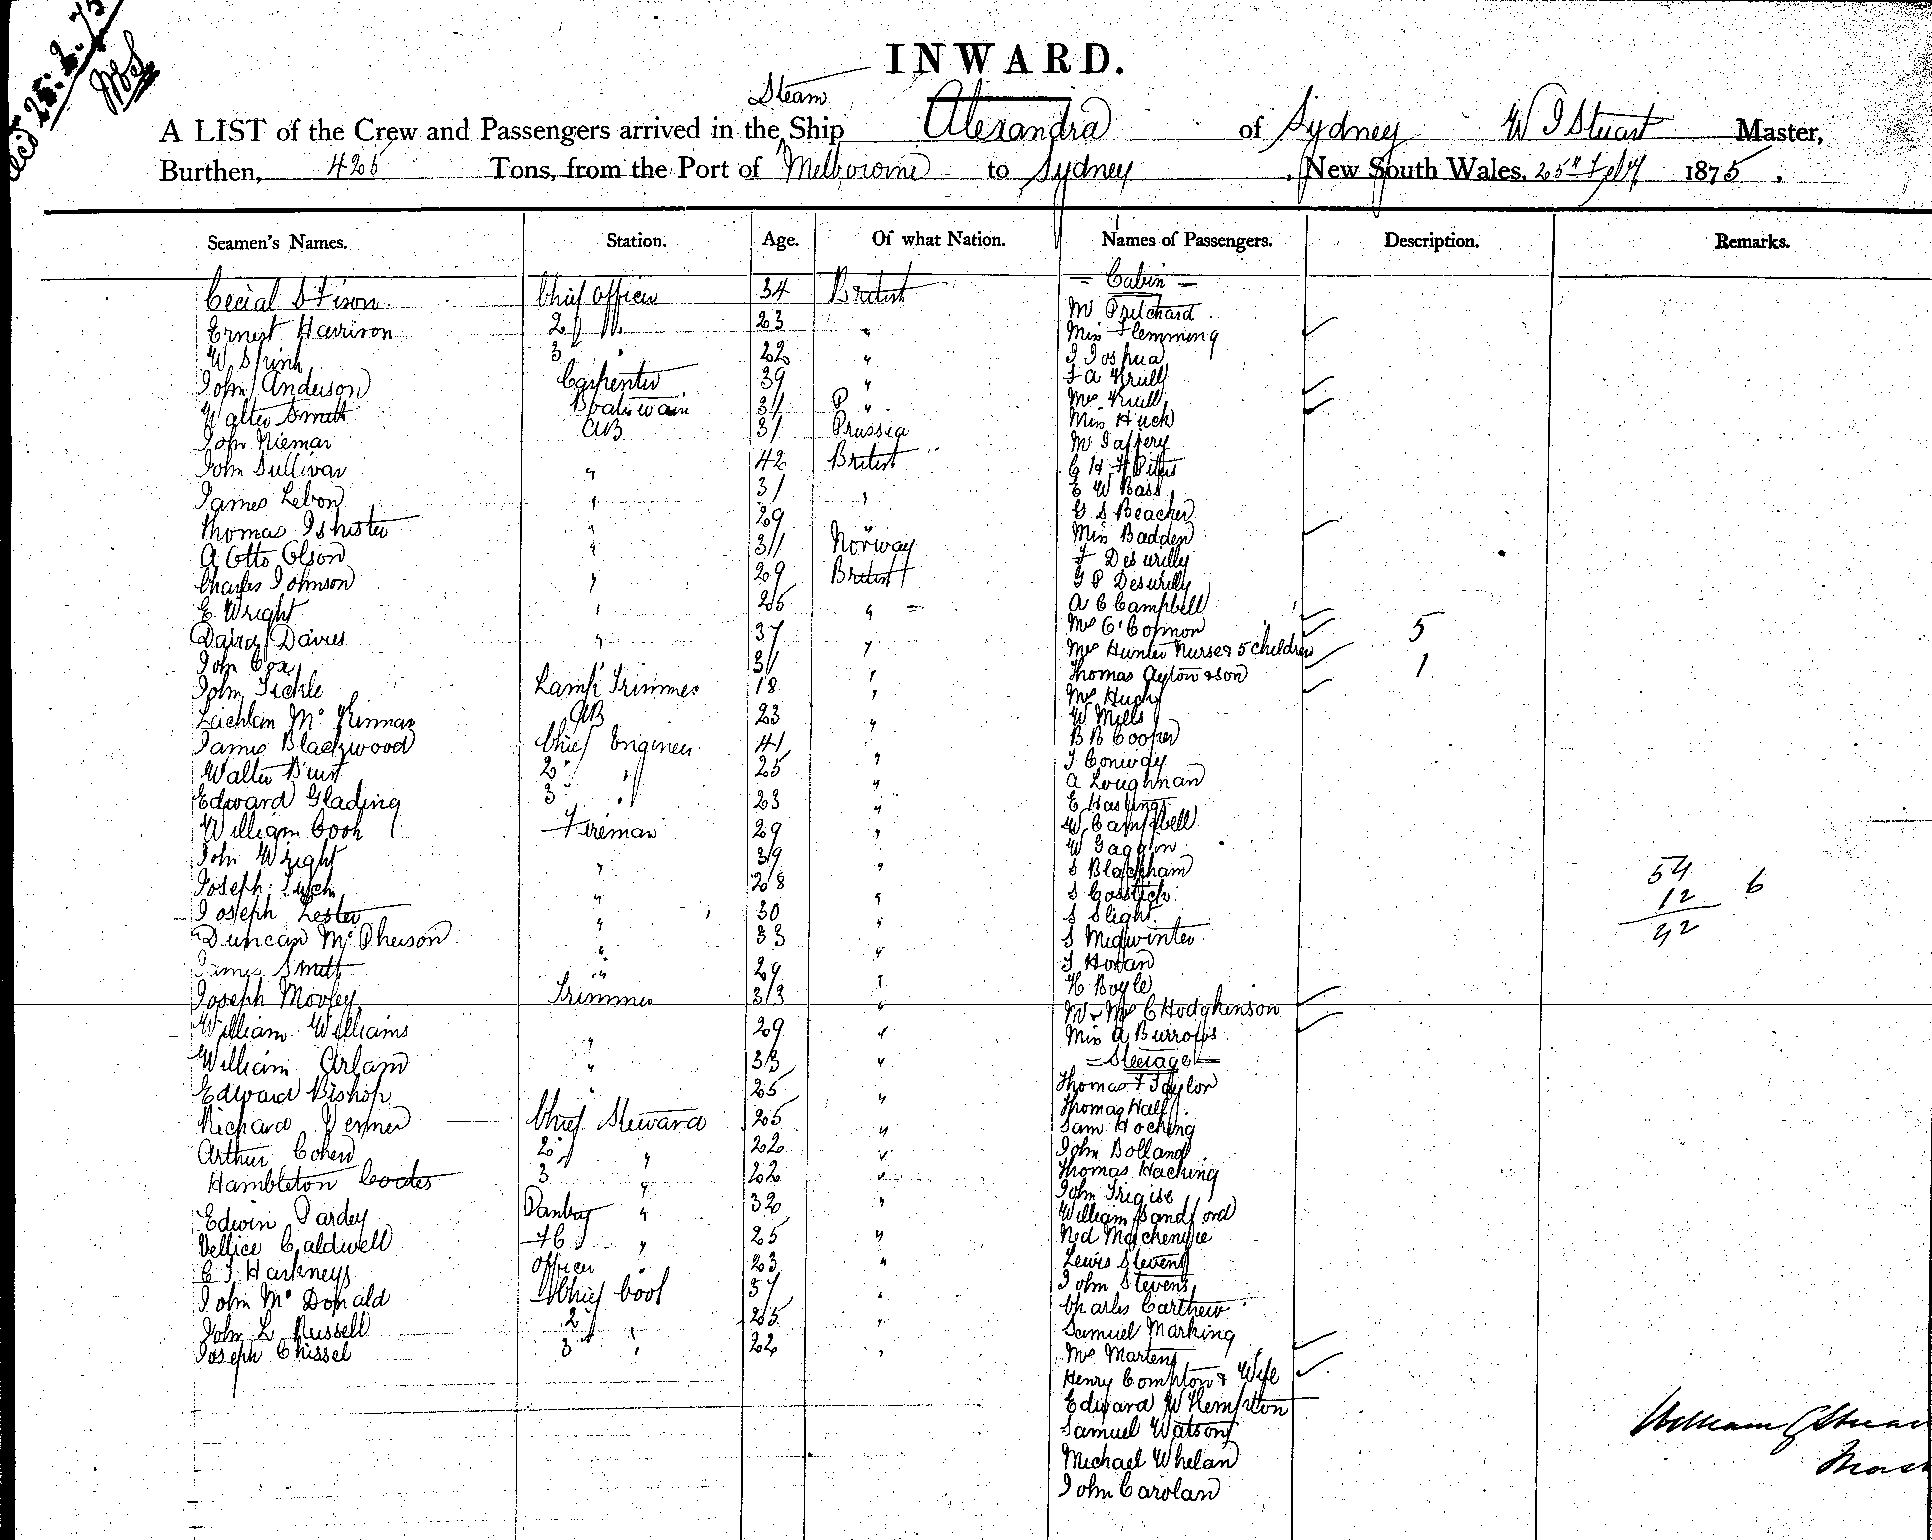 Recd 25.2.75
INWARD.
Steam
A LIST of the Crew and Passengers arrived in the Ship Alexandra of Sydney W J Stuart Master,
Burthen, 425 Tons, from the Port of Melbourne to Sydney, New South Wales, 25th Feby 1875.
Seamen's Names. Station. Age. Of what Nation. Names of Passengers. Description. Remarks.
— Cabin —
Chief Officer 34 British
Mr Pritchard
Ernest Harrison 2 " 23 "
Miss Flemming
W Spink 3 " 22 "
J Joshua
John Anderson Carpenter 39 "
F A Krull
Walter Smith Boatswain 31 "
Mrs Krull
John Niemar AB 31 Prussia
Miss Huck
Mr Jaffery
John Sullivan " 42 British
James Lebon " 31 "
E W Bass
Thomas Isbister " 29 "
G S Beacher
Miss Badden
A Otto Olson " 31 Norway
Charles Johnson " 29 British
A C Campbell
E. Wright " 25 "
Mrs O'Connor 5
David Davies " 37 "
Mrs Hunter Nurse & 5 children
John Cox 31 "
Thomas Ayton & son 1
John Tickle Lamp Trimmer 18 "
Mrs Hugh
Lachlan McKinnan AB 23 "
W Mills
James Blackwood Chief Engineer 41 "
B B Cooper
J Conway
Walter 2 " 25 "
A Loughnan
Edward Glading 3 " 23 "
E Hastings
William Cook Fireman 29 "
W. Campbell
W Gaggin
John Wright " 39 "
S Blackham
Joseph 28 "
S Cosstick
54
12 6
42
Joseph Lester " 30 "
S Slight
Duncan McPherson " 33 "
S Midwinter
James Smith " 29 "
T Horan
H Boyle
Joseph Trimmer 33 "
Mr & Mrs C Hodgkinson
William Williams " 29 "
Miss A Burrows
William Arlam " 33 "
— Steerage —
Edward Bishop " 25 "
Thomas F Taylor
Thomas Hall
Richard Chief Steward 25 "
Sam Hocking
Arthur Cohen 2 " 22 "
John Bolland
Hambleton Coates 3 " 22 "
Thomas Hacking
Edwin Pardey Pantry " 32 "
William Sandford
Vellice Caldwell " 25 "
Ned Mackenzie
C J Harkness Officer " 23 "
Lewis Stevens
John Stevens
John McDonald Chief Cook 37 "
Charles Carthew
John L Russell 2 " 25 "
Samuel Marking
Joseph Chissel 3 " 22 "
Mrs Martens
Henry Compton & Wife
Edward W Hempston
Samuel Watson
Michael Whelan
John Carolan
William J Stuar
Mas